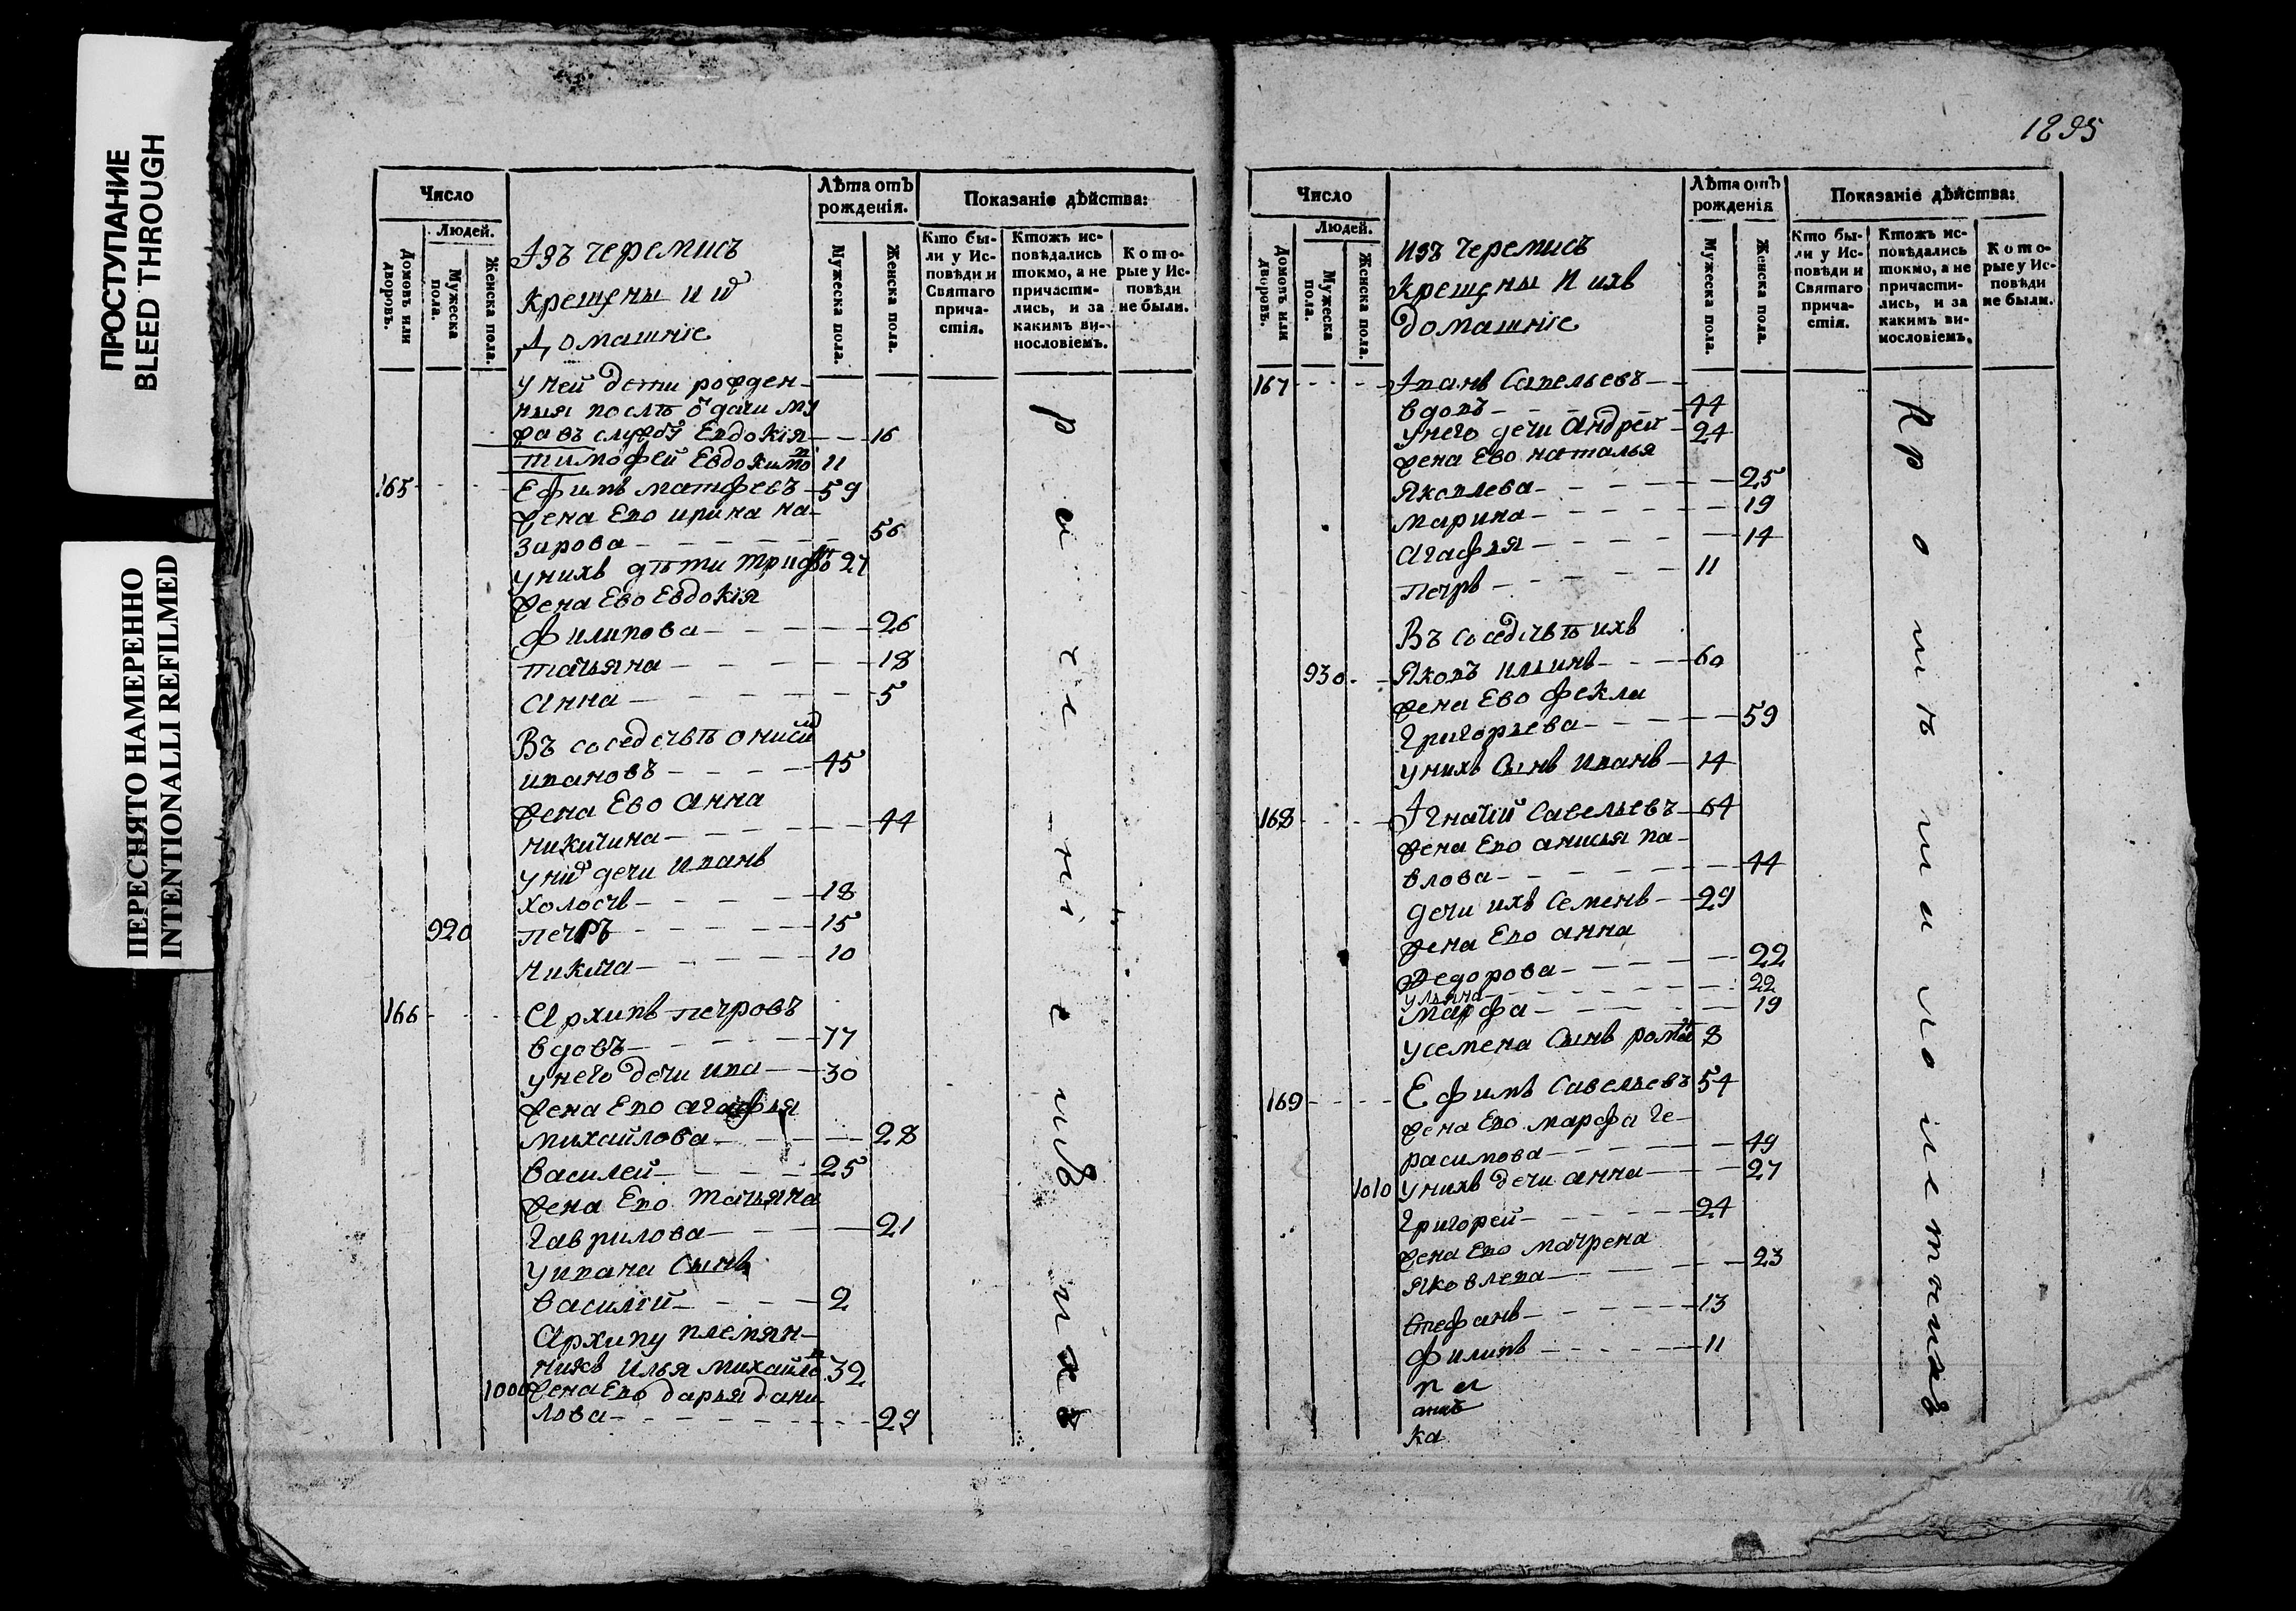 ПРОСТУПАНИЕ
BLEED THROUGH
ПЕРЕСНЯТО НАМЕРЕННО
INTENTIONALLI REFILMED
Число
Людей.
Домовъ или дворовъ.
Мужеска пола.
Женска пола.
Изъ черемисъ
крещены и
Домашніе
Лѣта отъ рожденія.
Мужеска пола.
Женска пола.
Показаніе дѣйства:
Кто бы-
ли у Ис-
повѣди и
Святаго
прича-
стія.
Ктожъ ис-
повѣдались
токмо, а не
причасти-
лись, и за
какимъ ви-
нословіемъ.
Кото-
рые у Ис-
повѣди
не были.
у ней дети рожден-
ныя послѣ одачи му
жа въ службу Евдокія 16
тимофей Евдокимо 11
165 Ефимъ матфевъ 59
жена Ево ирина на-
зарова 56
унихъ дѣти Трифо 27
жена Ево Евдокія
филипова 26
татьяна 18
Анна 5
Въ соседствѣ
ивановъ 45
жена Ево Анна
никитина 44
дети иванъ
холостъ 18
920 петръ 15
никита 10
166 Архипъ петровъ
вдовъ 77
унего дети ива 30
жена Ево агафья
михайлова 28
василей 25
жена Ево татьяна
гаврилова 21
уивана сынъ
василій 2
Архипу племян-
никъ Илья михайло 32
1000 жена Ево дарья дани
лова 29
1895
Число
Людей.
Домовъ или дворовъ.
Мужеска пола.
Женска пола.
изъ черемисъ
крещены и ихъ
домашніе
Лѣта отъ рожденія
Мужеска пола.
Женска пола.
Показаніе дѣйства:
Кто бы-
ли у Ис-
повѣди и
Святаго
прича-
стія.
Ктожъ ис-
повѣдались
токмо, а не
причасти-
лись, и за
какимъ ви-
нословіемъ.
Кото-
рые у Ис-
повѣди
не были.
167 Иванъ Савельевъ
вдовъ 44
унего дети Андрей 24
жена Ево наталья
Яковлева 25
марина 19
Агафья 14
петръ 11
Въ соседствѣ ихъ
930 Яковъ ильинъ 60
жена Ево фекла
Григорьева 59
унихъ сынъ иванъ 14
168 Игнатій Савельевъ 64
жена Ево анисья па-
влова 44
дети ихъ Семенъ 29
жена Ево анна
Федорова 22
ульяна 22
Марфа 19
усемена сынъ рома 8
169 Ефимъ Савельевъ 54
жена Ево марфа ге-
расимова 49
1010 унихъ дети анна 27
Григорей 24
жена Ево матрена
Яковлева 23
Стефанъ 13
филипъ 11
ка